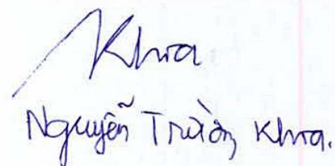 Khoa
Nguyễn Trường Khoa.